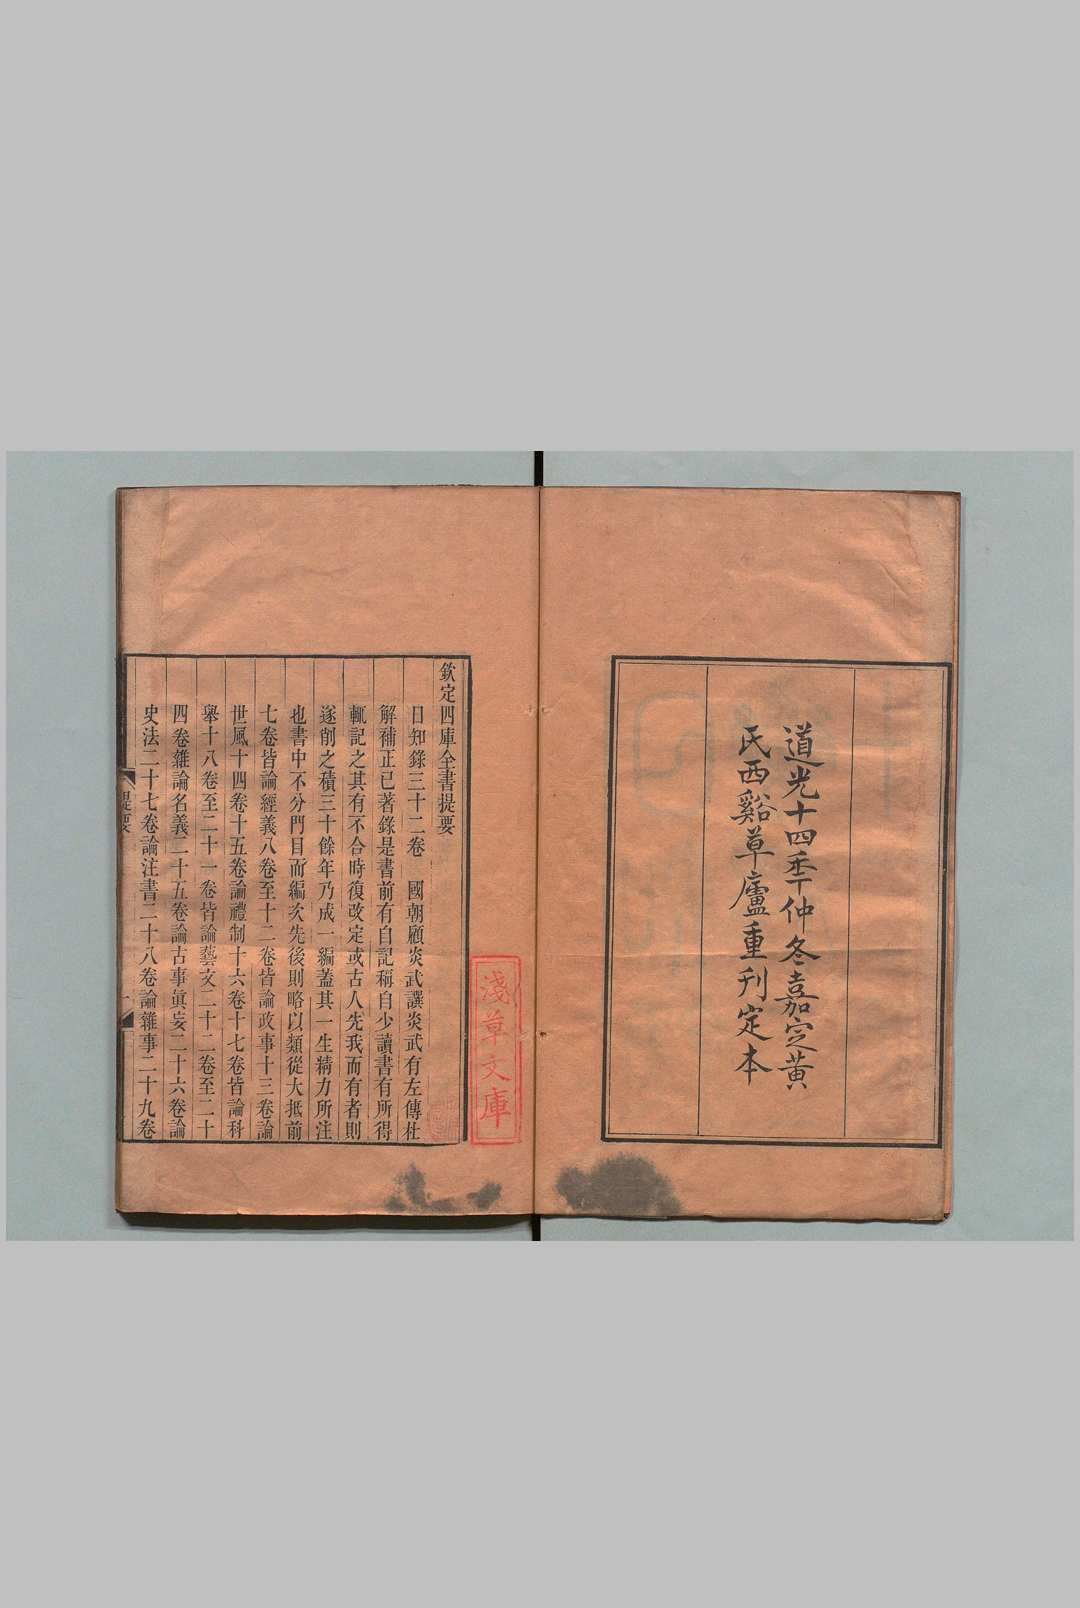 道光十四秊仲冬嘉定黄
氏西谿草廬重刊定本
淺草文庫
欽定四庫全書提要
日知錄三十二卷　國朝顧炎武譔炎武有左傳杜
解補正已著錄是書前有自記稱自少讀書有所得
輒記之其有不合時復改定或古人先我而有者則
遂削之積三十餘年乃成一編蓋其一生精力所注
也書中不分門目而編次先後則略以類從大抵前
七卷皆論經義八卷至十二卷皆論政事十三卷論
世風十四卷十五卷論禮制十六卷十七卷皆論科
舉十八卷至二十一卷皆論藝文二十二卷至二十
四卷雜論名義二十五卷論古事眞妄二十六卷論
史法二十七卷論注書二十八卷論雜事二十九卷
提要
一